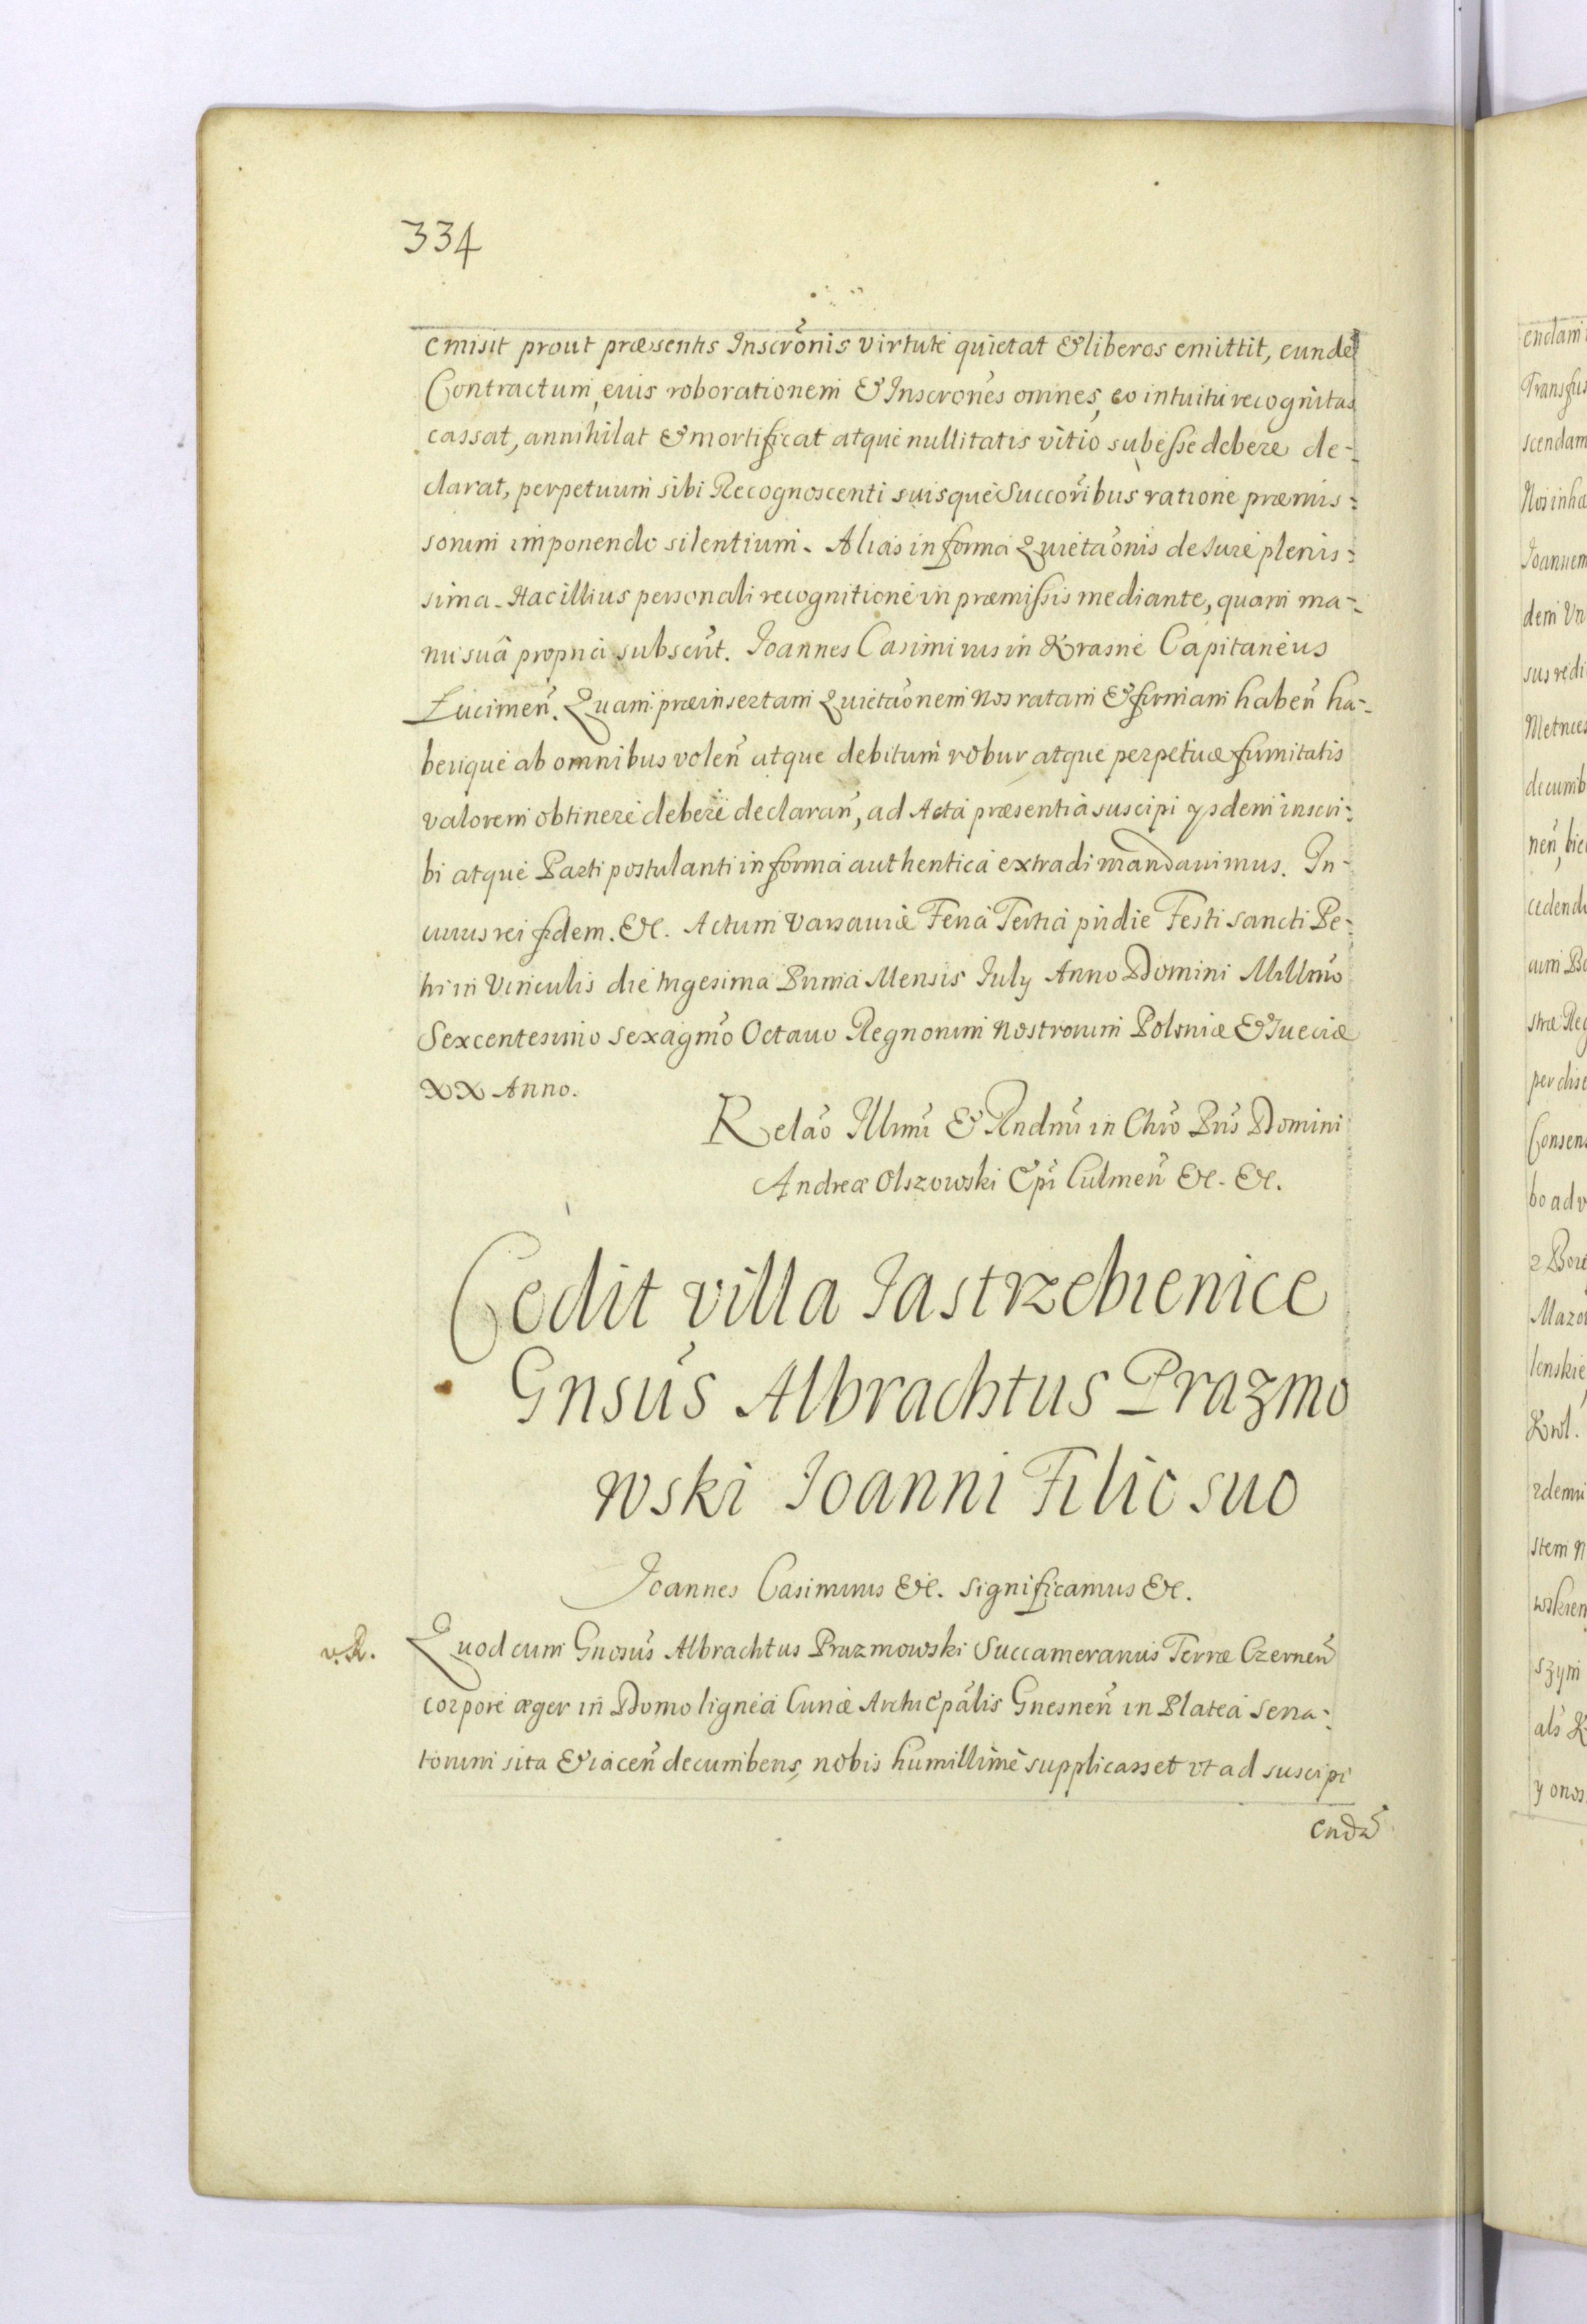 334
emisit prout præsentis Inscrõnis virtute quietat & liberos emittit, eundẽ
Contractum, eius roborationem & Inscrones omnes, eo intuitu recognitas
cassat, annihilat & mortificat atque nullitatis vitio subesse debere de-
clarat, perpetuum sibi Recognoscenti suisque Succoribus ratione præmis:
sorum imponendo silentium. Alias in forma Quietaonis de Iure plenis:
sima. Hac illius personali recognitione in præmissis mediante, quam ma-
nu suâ propria subscrit. Joannes Casimirus in Krasne Capitaneus
Lucimeñ. Quam præinsertam Quietaonem Nos ratam & firmam habeñ ha-
berique ab omnibus voleñ atque debitum robur atque perpetuæ firmitatis
valorem obtinere debere declarañ, ad Acta præsentia suscipi ysdem inscri:
bi atque Parti postulanti in forma authentica extradi mandauimus. In
cuius rei fidem. &c. Actum Varsauiæ Feria Tertia pridie Festi Sancti Pe-
tri in Vinculis die trigesima Prima Mensis July Anno Domini Millmo
Sexcentesimo sexagmo Octauo Regnorum Nostrorum Poloniæ & Sueciæ
XX Anno.
Relao Illmi & Rndmi in Chro Pris Domini
Andreæ Olszowski Epi Culmeñ &c. &c.
Cedit villa Iastrzebienice
Gnsus Albrachtus Prazmo
wski Ioanni Filio suo
Joannes Casimirus &c. significamus &c.
v. R.
Quod cum Gnosus Albrachtus Prazmowski Succamerarius Terræ Czerneñ
corpore æger in Domo lignea Curiæ Archiepalis Gnesneñ in Platea Sena-
torum sita & iaceñ decumbens, nobis humillime supplicasset vt ad suscipi
endã
enclam
Transfus
scendam
Nos inhæ
Joannem
dem Vn
sus redi
Metrices
decumb
neñ, bic
cedend
cum Bo
stræ Reg
per disc
Consens
bo adv
z Bore
Mazo
lenskie
Krol.
zdemu
stem N
wskiem
szym
als K
y onos